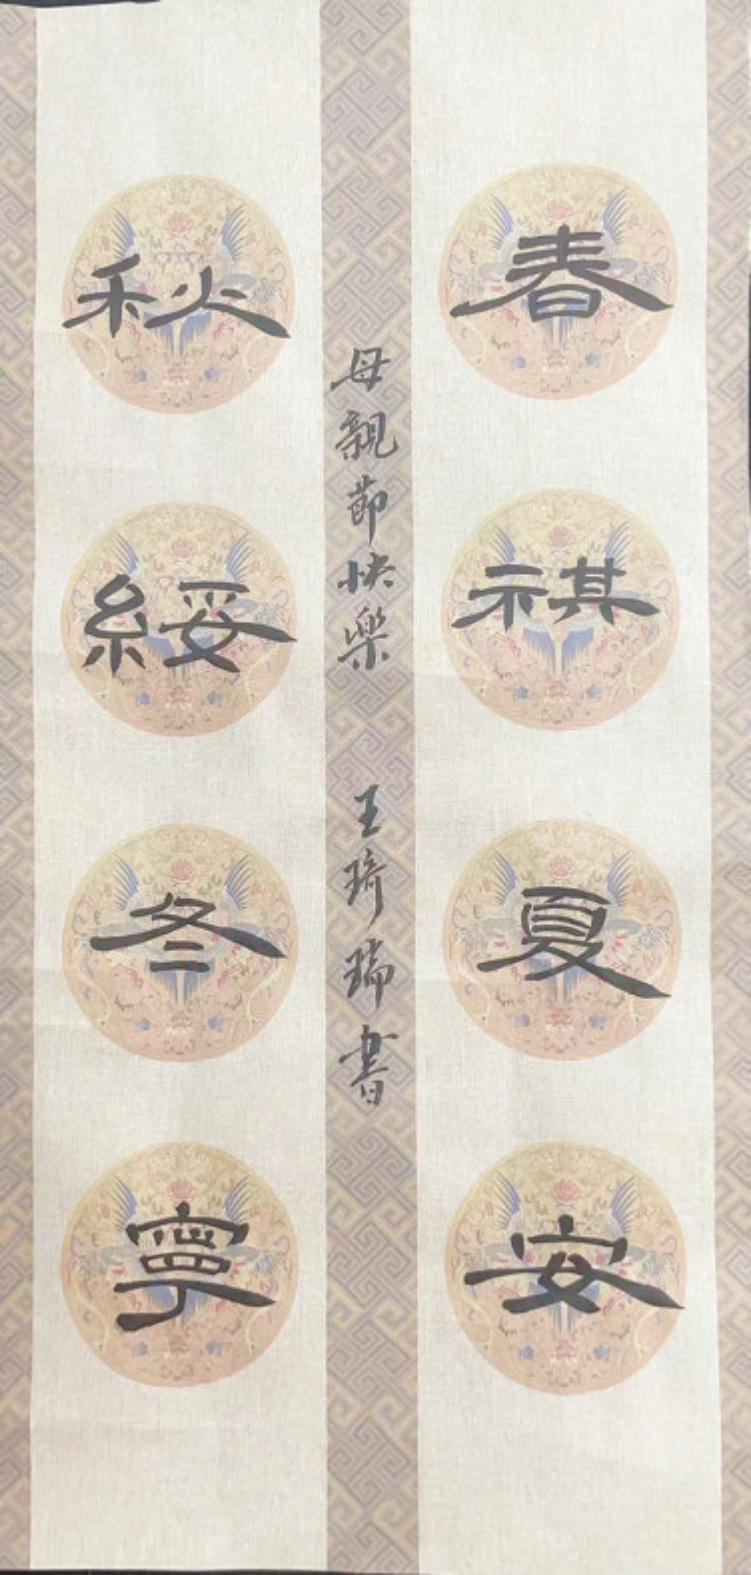 春祺夏安
秋綏冬寧
母親節快樂 王琦瑞書